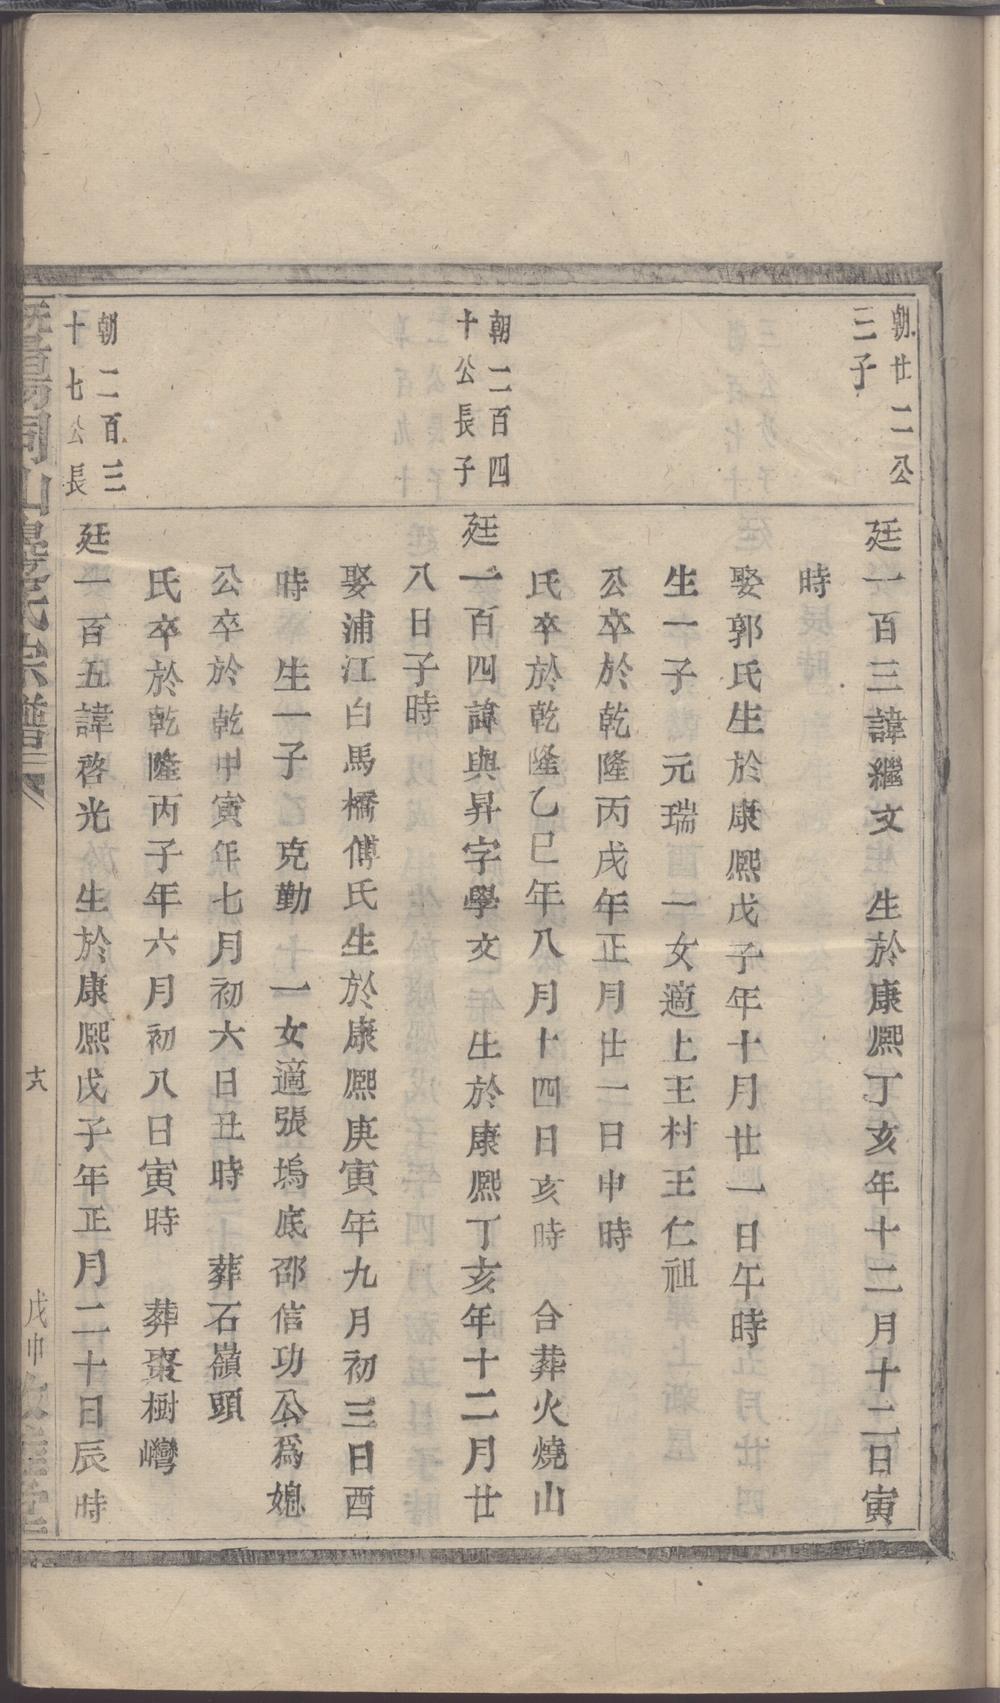 朝廿二公
三子
廷一百三諱繼文　生於康熙丁亥年十二月十二日寅
時
娶郭氏生於康熙戊子年十月廿一日午時
生一子　元瑞　一女適上王村王仁祖
公卒於乾隆丙戌年正月廿二日申時
氏卒於乾隆乙巳年八月十四日亥時　合葬火燒山
朝二百四
十公長子
廷一百四諱與昇字學文　生於康熙丁亥年十二月廿
八日子時
娶浦江白馬橋傅氏生於康熙庚寅年九月初三日酉
時　生一子　克勤　一女適張塢底邵信功公爲媳
公卒於乾中寅年七月初六日丑時　葬石嶺頭
氏卒於乾隆丙子年六月初八日寅時　葬棗樹灣
朝二百三
十七公長
廷一百五諱啓光　生於康熙戊子年正月二十日辰時
暨陽同山邊氏宗譜
十八
戊申